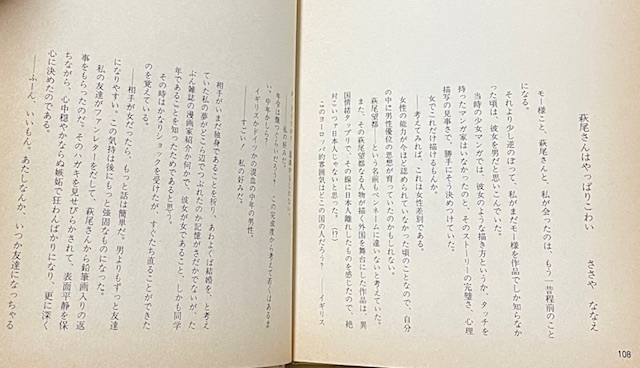 萩尾さんはやっぱりこわい
ささや ななえ
モー様こと、萩尾さんと、私が会ったのは、もう一昔程前のこと
になる。
それより少し逆のぼって、私がまだモー様を作品でしか知らなか
った頃は、彼女を男だと思いこんでいた。
当時の少女マンガでは、彼女のような描き方というか、タッチを
持ったマンガ家はいなかったのと、そのストーリーの完璧さ、心理
描写の見事さで、勝手にそう決めつけていた。
女でこれだけ描けるもんか。
――考えてみれば、これは女性差別である。
女性の能力が今ほど認められていなかった頃のことなので、自分
の中に男性優位の思想が育っていたのかもしれない。
萩尾望都――という名前（ペンネームに違いないと考えていた。
また、その萩尾望都なる人物が描く外国を舞台にした作品は、異
国情緒タップリで、その線に日本人離れしたものを感じたので、絶
対こいつァ日本人じゃないと思った。（!?）
このヨーロッパ的雰囲気はどこの国の人だろう？――イギリス
年令は幾つぐらいだろう？ この完成度から考えて若くはあるま
い、中年かしら？
イギリスかドイツかの混血の中年の男性。
――すごい／ 私の好みだ。
相手がいまだ独身であることを祈り、あわよくば結婚を、と考え
ていた私の夢がどこら辺でつぶれたのか記憶がさだかでないが、た
ぶん雑誌の漫画家紹介か何かで、彼女が女であること、しかも同学
年であることを知ったためであると思う。
その時はかなりショックを受けたが、すぐたち直ることができた
のを覚えている。
――相手が女だったら、もっと話は簡単だ。男よりもずっと友達
になりやすい。この気持は後にもっと強固なものになった。
私の友達がファンレターをだして、萩尾さんから鉛筆画入りの返
事をもらったのだ。そのハガキを見せびらかされて、表面平静を保
ちながら、心中穏やかならぬ嫉妬で狂わんばかりになり、更に深く
心に決めたのである。
――ふーん、いいもん。あたしなんか、いつか友達になっちゃる
108